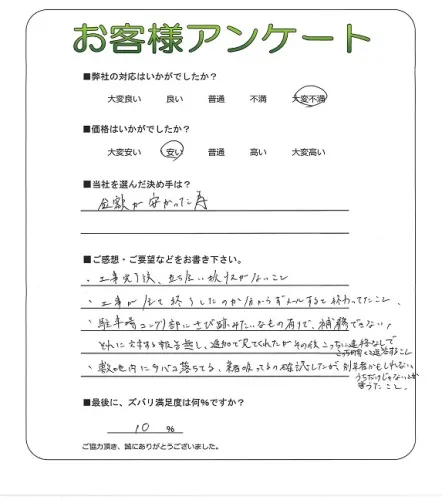 お客様アンケート
■弊社の対応はいかがでしたか?
大変良い 良い 普通 不満 大変不満
■価格はいかがでしたか?
大変安い 安い 普通 高い 大変高い
■当社を選んだ決め手は?
金額が安かった事
■ご感想・ご要望などをお書き下さい。
・工事完了後、立ち会い がないこと
・工事が全て終了したのか分からずメールすると終わってたこと、
・駐車場コンクリ部にさび跡みたいなもの有りで、補修できない、
それに対する報告無し、追加で見てくれたがその後こっちに連絡なしで
こっちから連絡すること
・敷地内にタバコ落ちてる、 吸ってるの確認したが、別業者かもしれない、
うちだけじゃないとか
言うたこと。
■最後に、ズバリ満足度は何%ですか?
10 %
ご協力頂き、誠にありがとうございました。